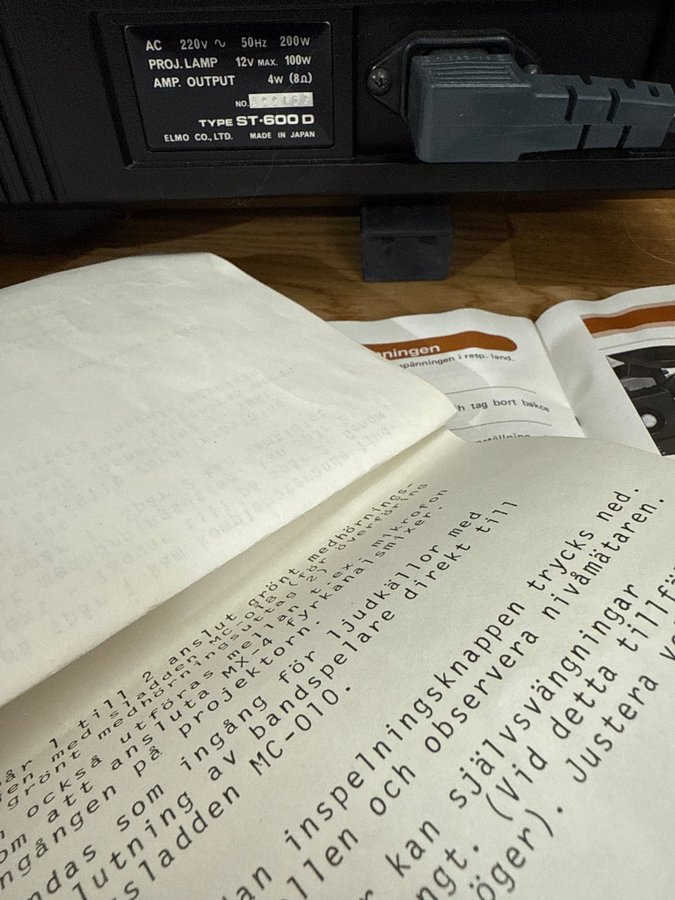 AC 220V ~ 50Hz 200W
PROJ.LAMP 12V MAX. 100W
AMP. OUTPUT 4W (8Ω)
NO.
TYPE ST-600 D
ELMO CO., LTD. MADE IN JAPAN
ningen
spänningen i resp. land.
h tag bort bakre
nställning
år 1 till 2 anslut grönt medhörnings-
en med sladden MC-018 (för överföring
grönt medhörningsuttag 2)
n också utföras mellan t.ex. mikrofon
om att ansluta MX-4 fyrkanalsmixer.
ngången på projektorn.
ndas som ingång för ljudkällor med
lutning av bandspelare direkt till
sladden MC-010.
dan inspelningsknappen trycks ned.
llen och observera nivåmätaren.
r kan självsvängningar
ngt. (Vid detta tillfä
öger). Justera vo